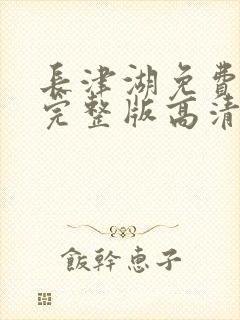 長津湖免費
完整版高清
飯幹恵子